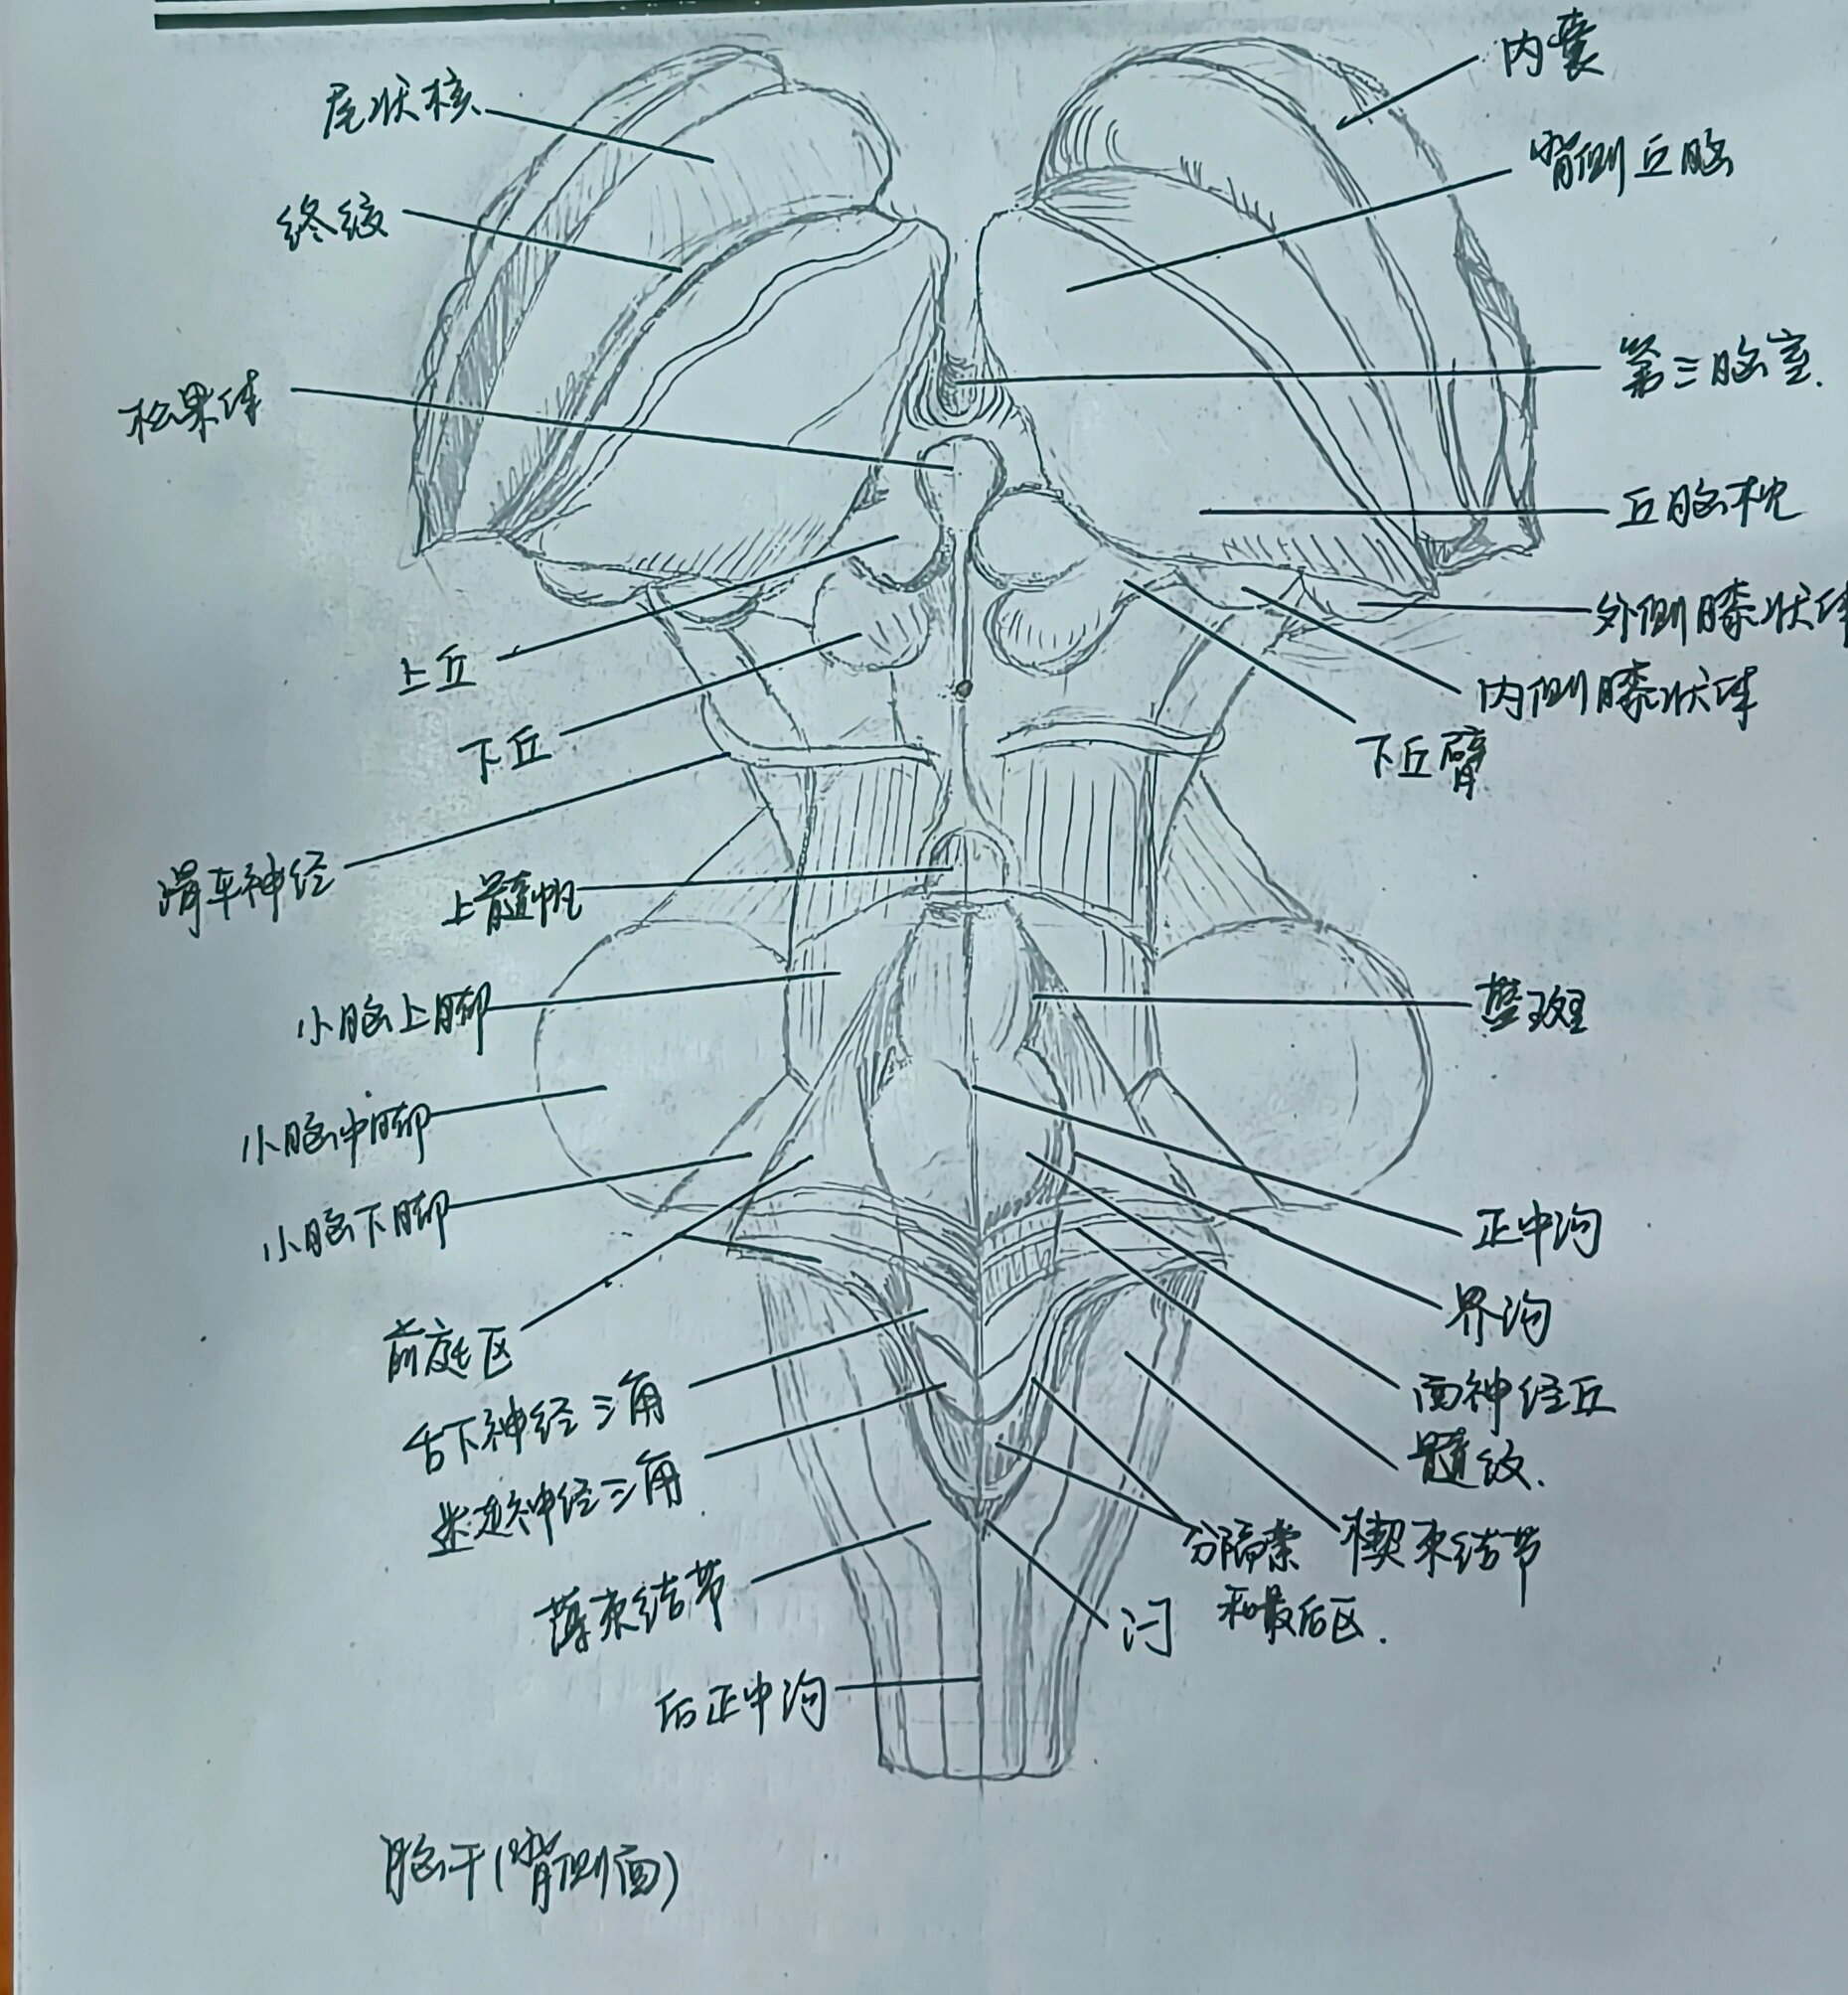 尾状核
内囊
背侧丘脑
终纹
第三脑室.
松果体
丘脑枕
外侧膝状体
上丘
内侧膝状体
下丘
下丘臂
滑车神经
上髓帆
小脑上脚
蓝斑
小脑中脚
小脑下脚
正中沟
界沟
前庭区
面神经丘
舌下神经三角
髓纹.
迷走神经三角
分隔索
和最后区.
楔束结节
薄束结节
闩
后正中沟
脑干(背侧面)